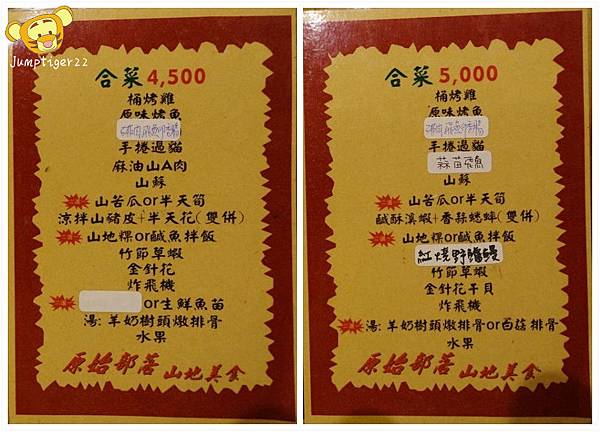 Jumptiger22
合菜4,500
桶烤雞
原味烤魚
手捲過貓
麻油山A肉
山蘇
山苦瓜or半天筍
涼拌山豬皮+半天花(雙併)
山地粿or鹹魚拌飯
竹節草蝦
金針花
炸飛機
or生鮮魚苗
湯:羊奶樹頭燉排骨
水果
原始部落 山地美食
合菜5,000
桶烤雞
原味烤魚
手捲過貓
蒜苗飛魚
山蘇
山苦瓜or半天筍
鹹酥溪蝦+香蒜蟋蟀(雙併)
山地粿or鹹魚拌飯
紅燒野鱸鰻
竹節草蝦
金針花干貝
炸飛機
湯:羊奶樹頭燉排骨or百菇排骨
水果
原始部落 山地美食